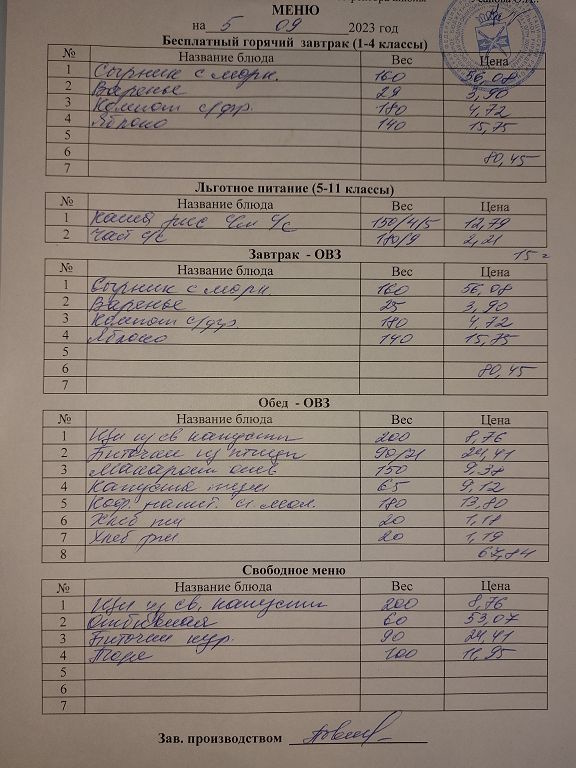 МЕНЮ
на 5 09 2023 год
Бесплатный горячий завтрак (1-4 классы)
№ Название блюда Вес Цена
1 Сырник с морк. 160 56,08
2 Варенье 3,90
3 Компот с/фр. 180 4,72
4 Яблоко 140 15,75
5
6 80,45
7
Льготное питание (5-11 классы)
№ Название блюда Вес Цена
1 Каша рис 150/4/5 12,79
2 Чай с/с 180/9 2,21
15 =
Завтрак - ОВЗ
№ Название блюда Вес Цена
1 Сырник с морк. 160 56,08
2 Варенье 25 3,90
3 Компот с/фр 180 4,72
4 Яблоко 140 15,75
5
6 80,45
7
Обед - ОВЗ
№ Название блюда Вес Цена
1 Щи из св капусты 200 8,76
2 Биточки из птицы 90/21 24,41
3 Макароны отв 150 9,38
4 Капуста туш 65 9,12
5 Коф. напит. с мол. 180 13,80
6 Хлеб пш 20 1,18
7 Хлеб рж 20 1,19
8 67,84
Свободное меню
№ Название блюда Вес Цена
1 Щи из св. капусты 200 8,76
2 Отбивная 60 53,07
3 Биточки кур. 90 24,41
4 100 11,95
5
6
7
Зав. производством